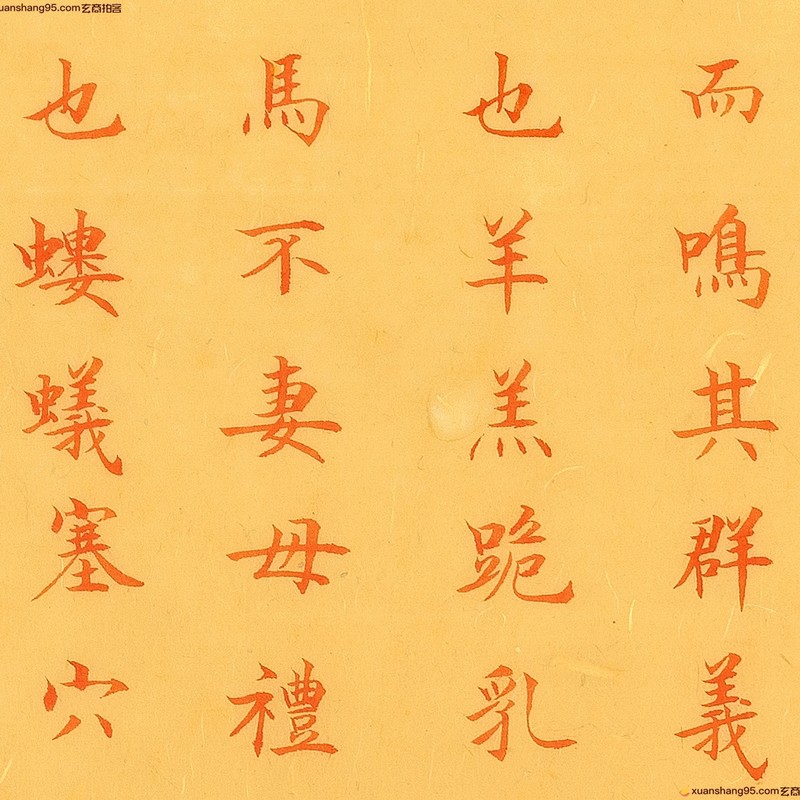 xuanshang95.com玄商拍客
而鳴其群義
也羊羔跪乳
馬不妻母禮
也螻蟻塞穴
xuanshang95.com玄商